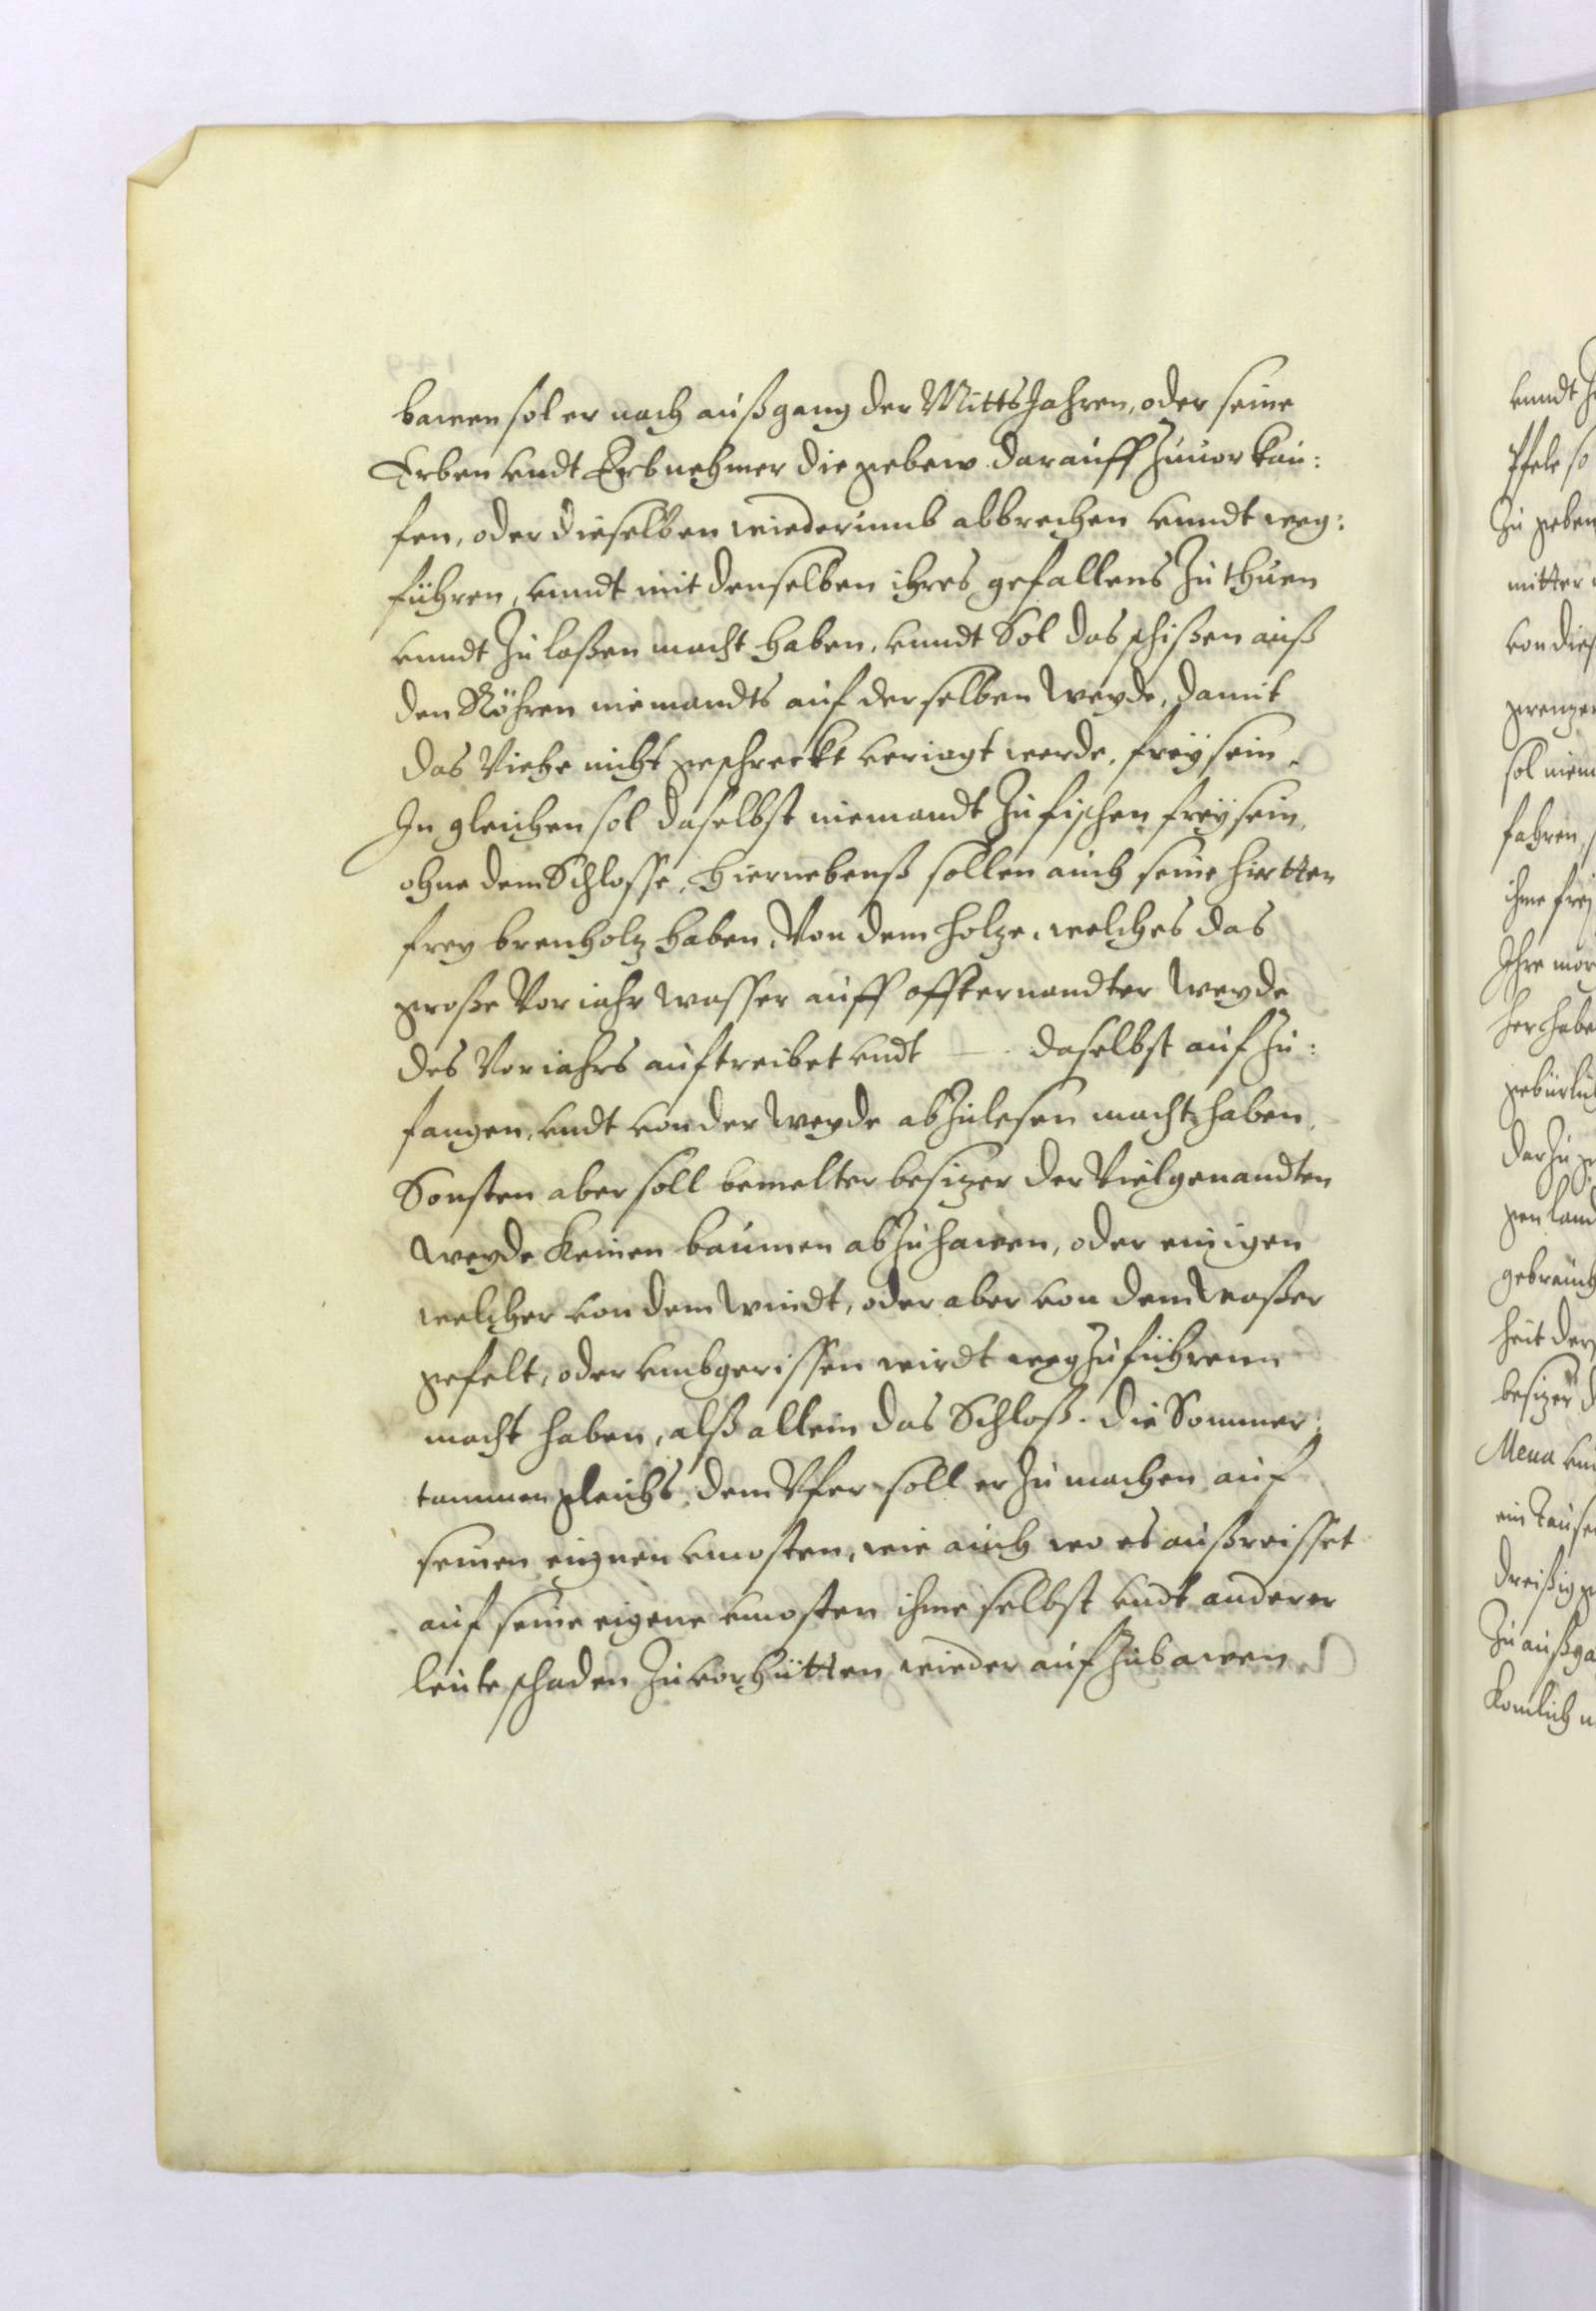 bawen sol er nach außgang der MittsJahren, oder seine
Erben vndt Erbnehmer die gebew darauff Zuuorkau:
fen, oder dieselben wiederumb abbrechen vnndt weg:
führen, vnndt mit denselben ihres gefallens Zuthuen
vnndt Zulaßen macht haben, vnndt Sol das schißen auß
den Röhren niemandts auf derselben Weyde, damit
das Viehe nicht geschreckt veriagt werde, freÿ sein.
In gleichen sol daselbst niemandt Zufischen freÿ sein,
ohne dem Schlosse, Hiernebenß sollen auch seine hirtten
frey brenholz haben, Von dem holze, welches das
große Voriahr Wasser auff offternandter Weyde
des Voriahrs auftreibet vndt — daselbst auf Zu:
fangen, vndt von der Weyde abZulesen macht haben,
Sonsten aber soll bemelter besizer der Vielgenandten
Weyde Keinen baumen abZuhawen, oder einigen
welcher von dem Windt, oder aber von dem Waßer
gefelt, oder vmbgerissen wirdt wegZuführenn
macht haben, alß allein das Schloß. die Sommer:
tammen gleichs dem Vfer soll er Zumachen auf
seinen eignen vnnosten, wie auch wo es außreisset
auf seine eigene vnnosten ihme selbst vndt anderer
leute schaden Zuvorhütten wieder aufZubawen
vnndt
so
Zu geben
mitter
von dies
sol niem
fahren,
ihme frej
Ihre
her habe
gebürlic
darZu
land
gebreuch
heit der
besizer d
Mena
ein Tause
dreißig
Zu außga
Komlich